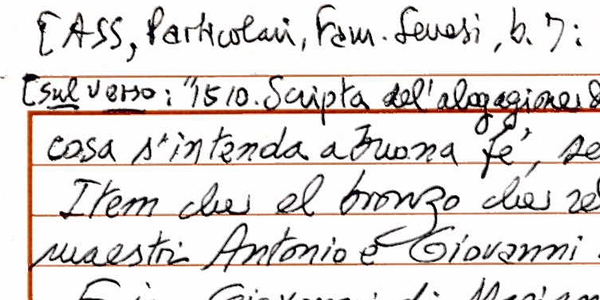 [ASS, Particolari, Fam. Senesi, b. 7:
[sul verso: "1510. Scripta del'alogagione
cosa s'intenda a buona fé, se
Item che el bronzo che
maestri Antonio e Giovanni
Giovanni di